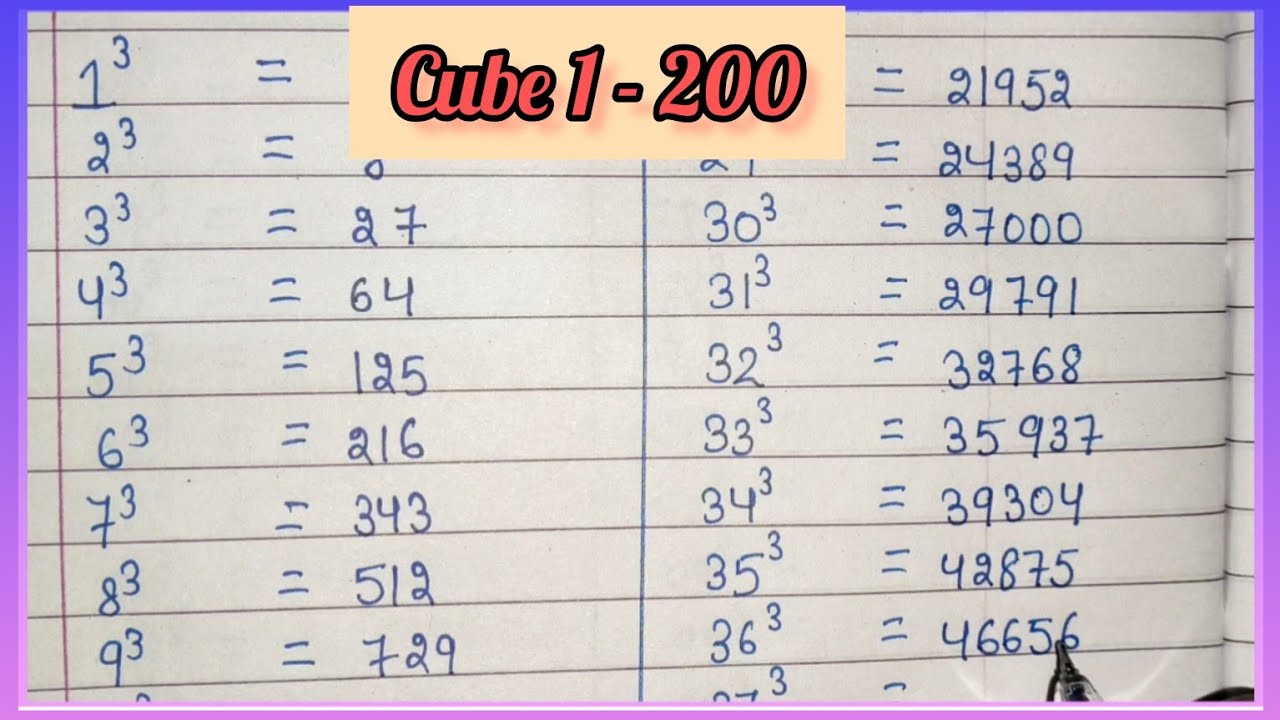 Cube 1 - 200
1³ =
2³ =
3³ = 27
4³ = 64
5³ = 125
6³ = 216
7³ = 343
8³ = 512
9³ = 729
= 21952
= 24389
30³ = 27000
31³ = 29791
32³ = 32768
33³ = 35937
34³ = 39304
35³ = 42875
36³ = 46656